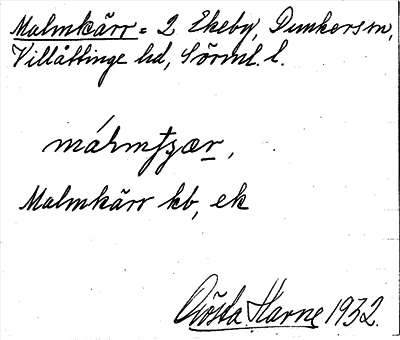 Malmkärr = 2 Ekeby, Dunkers sn,
Villåttinge hd, Sörml. l.
málmʃʒær,
Malmkärr kb, ek
Gösta Harne 1932.